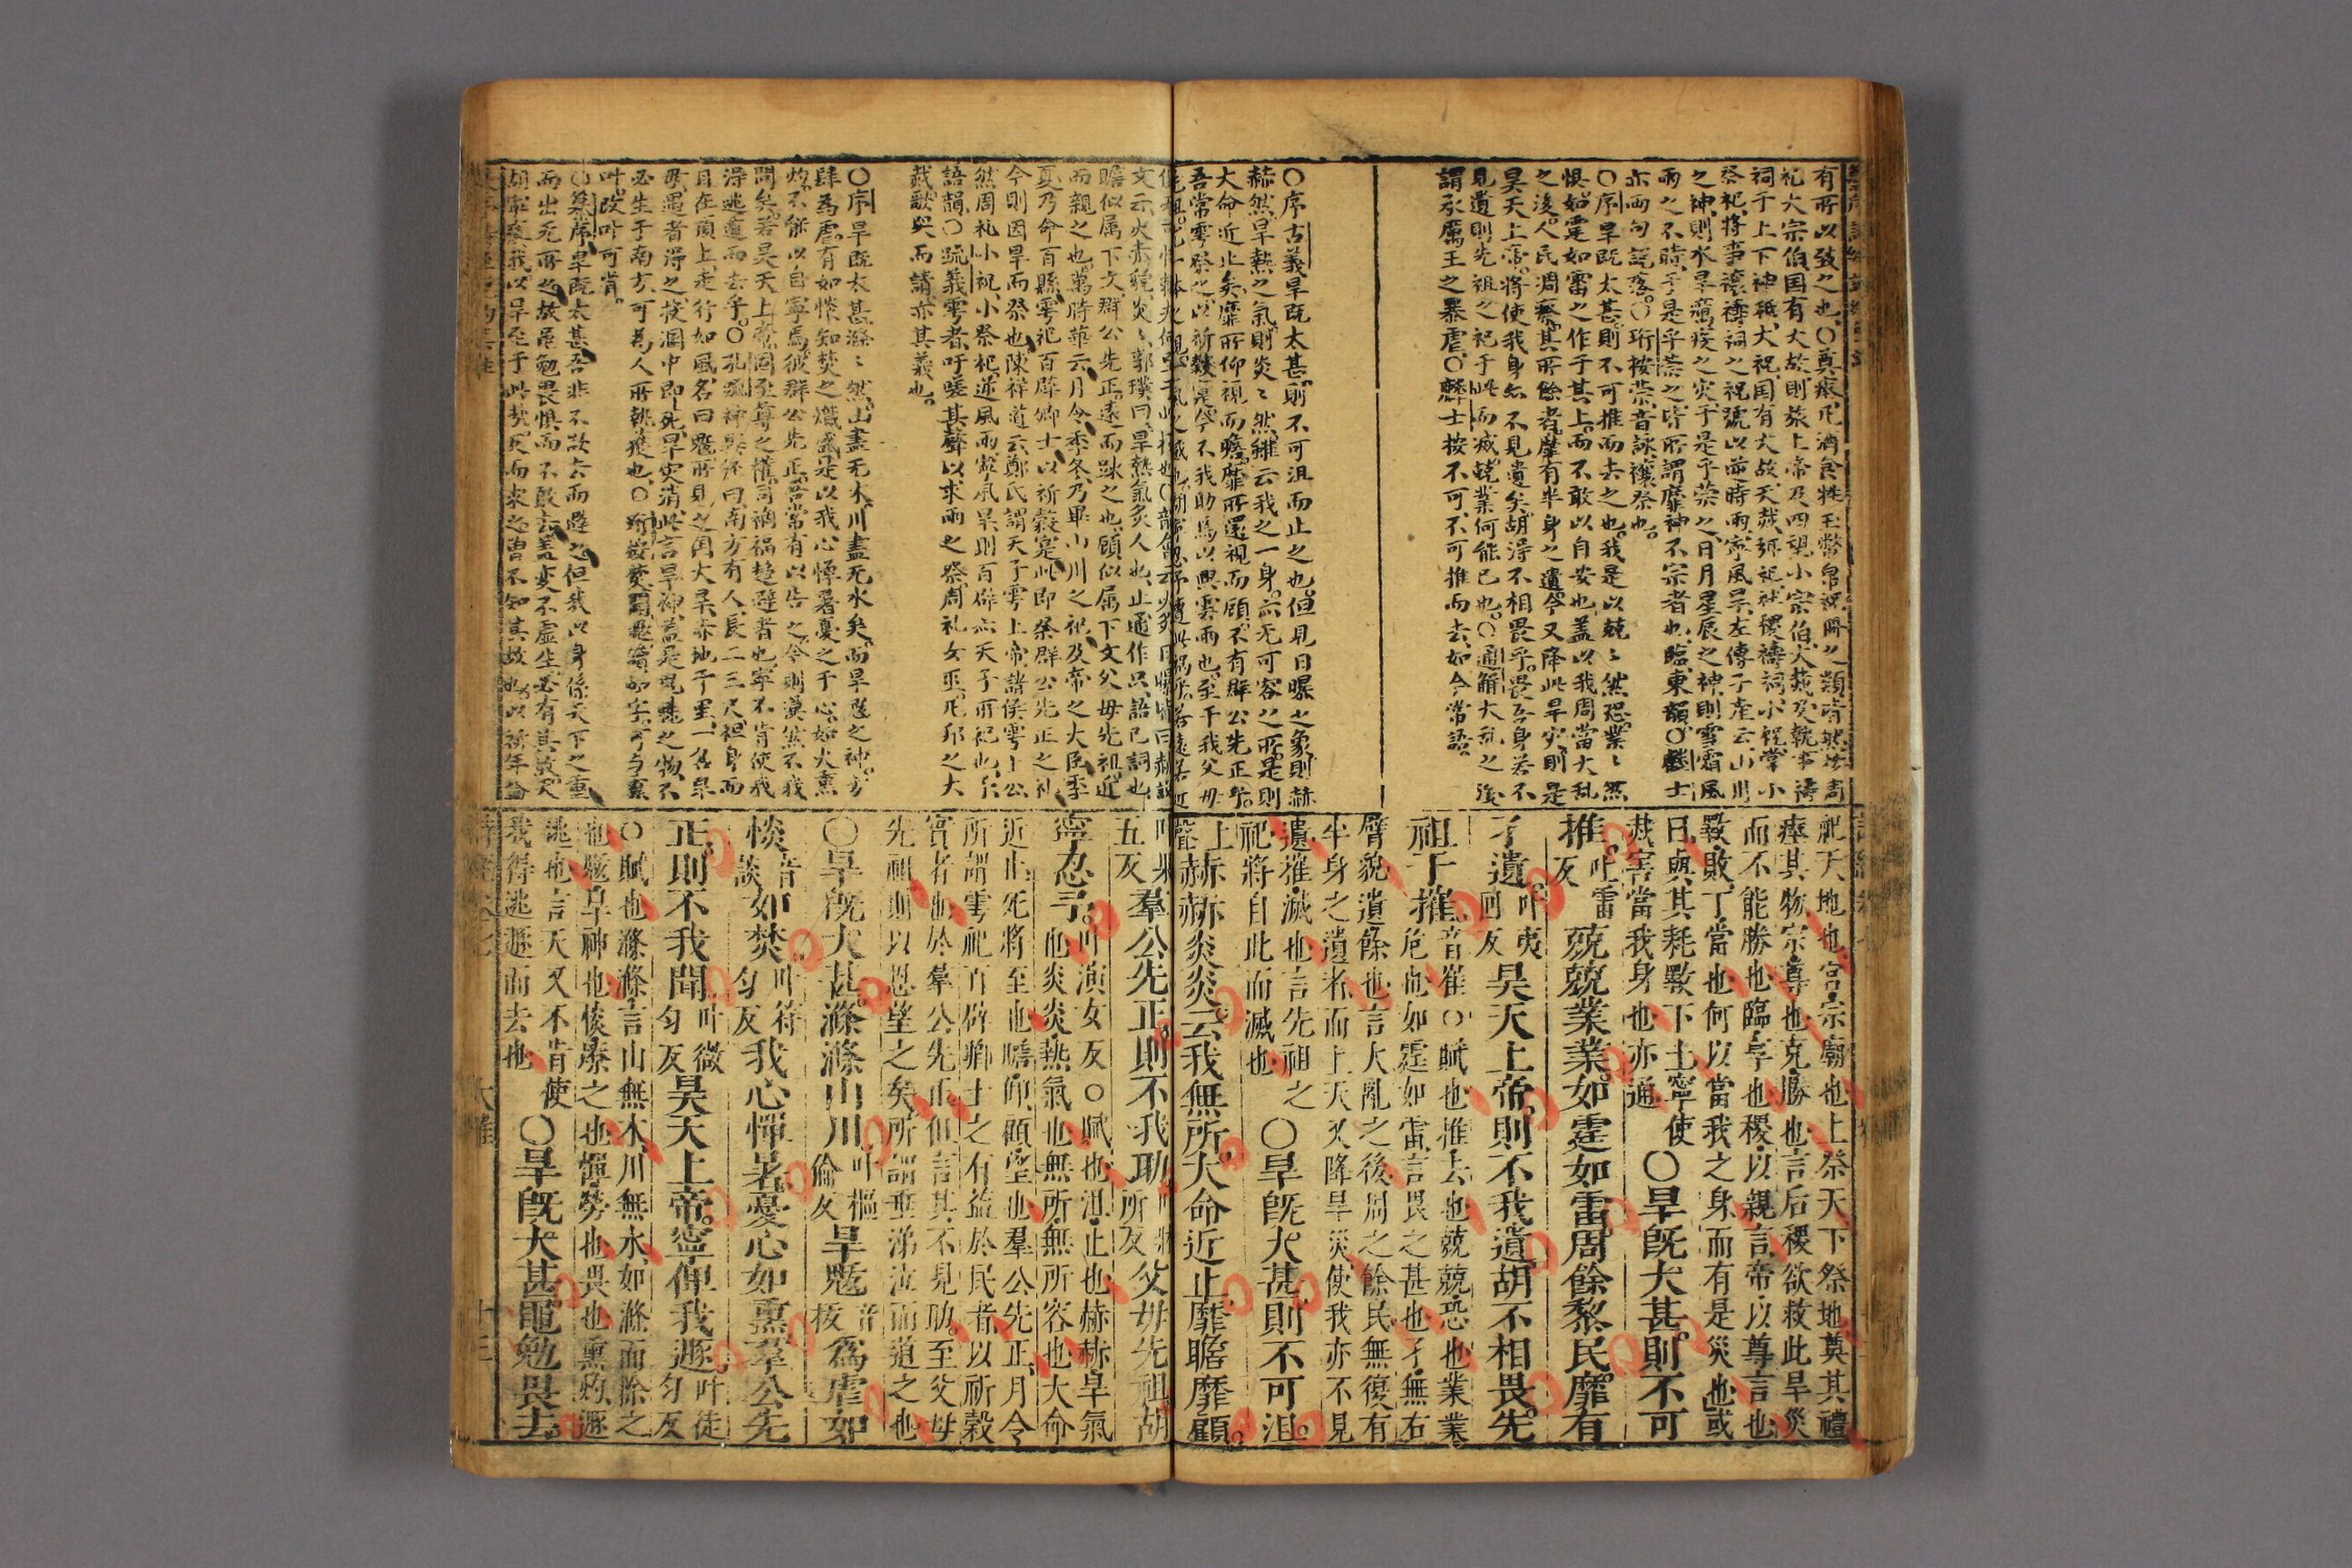 有所以致之也○奠瘞凡酒食牲玉幣帛祝冊之類皆然按周
礼大宗伯国有大故則祭上帝及四望小宗伯大烖及執事禱
祠于上下神祗大祝国有大故天烖弥祀社稷禱祠小祝掌小
祭祀將事禳禱祠之祝號以逆時雨寧風旱左傳子産云山川
之神則水旱癘疫之灾于是乎禜之日月星辰之神則雪霜風
雨之不時于是乎禜之皆所謂靡神不宗者也臨東韻○麟士
亦両句説落○珩按禜音詠禳祭也
○序旱既太甚則不可推而去之也我是以兢〻然恐業〻然
惧如霆如雷之作于其上而不敢以自安也盖以我周當大乱
之後人民凋瘵其所餘者靡有半身之遺今又降此旱灾則是
昊天上帝將使我身亦不見遺矣胡得不相畏乎畏吾身若不
見遺則先祖之祀于此而滅兢業何能已也○通解大乱之後
謂承厲王之暴虐○麟士按不可不可推而去如今常語
○序古義旱既太甚則不可沮而止之也但見日曝之象則赫
赫然旱熱之氣則炎〻然雖云我之一身亦无可容之所是則
大命近止矣靡所仰視而瞻靡所還視而顧不有群公先正乎
吾常雩祭之以祈穀寔今不我助焉以興雲雨也至于我父母
祀天地也宮宗廟也上祭天下祭地奠其禮
瘞其物宗尊也克勝也言后稷欲救此旱災
而不能勝也臨享也稷以親言帝以尊言也
斁敗丁當也何以當我之身而有是災也或
曰與其耗斁下土寧使
烖害當我身也亦通○旱既大甚則不可
推吐雷反兢兢業業如霆如雷周餘黎民靡有
孑遺叶夷回反昊天上帝則不我遺胡不相畏先
祖于摧音崔○賦也推去也兢兢恐也業業
危也如霆如雷言畏之甚也孑無右
臂貌遺餘也言大亂之後周之餘民無復有
半身之遺者而上天又降旱災使我亦不見
遺摧滅也言先祖之
祀將自此而滅也○旱既大甚則不可沮
上聲赫赫炎炎云我無所大命近止靡瞻靡顧
文云火赤貌炎〻郭璞曰旱熱氣炙人也止通作只語已詞也
瞻似属下文群公先正遠而踈之也顧似属下文父母先祖近
而親之也萬時華云月令季冬乃畢山川之祀及帝之大臣季
夏乃命百縣雩祀百辟卿士以祈穀寔此即祭群公先正之礼
今則因旱而祭也陳祥道云鄭氏謂天子雩上帝諸侯雩上公
然周礼小祝小祭祀逆風雨寧風旱則百辟亦天子所祀也予
語韻○疏義雩者吁嗟其聲以求雨之祭周礼女巫凡邦之大
烖歌哭而請亦其義也
○序旱既太甚滌〻然山盡无木川盡无水矣而旱魃之神方
肆為虐有如惔知焚之熾盛是以我心憚暑憂之于心如火熏
灼不能以自寧焉彼群公先正吾常有以告之今則漠然不我
聞矣若昊天上帝固至尊之權司禍福趋避者也寧不肯使我
得逃遁而去乎○孔疏神異経曰南方有人長二三尺袒身而
目在頂上走行如風名曰魃所見之国大旱赤地千里一名旱
母遇者得之投溷中即死旱灾消此言旱神盖是鬼魅之物不
必生于南方可為人所執獲也
叶改叶可省
○集序旱既太甚吾非不欲去而避之但我以身係天下之重
而出无所之故黽勉畏惧而不敢去盖灾不虛生必有其故天
胡寧瘨我以旱至于此
叶果五反羣公先正則不我助叶牀所反父母先祖胡
寧忍予叶演女反○賦也沮止也赫赫旱氣
也炎炎熱氣也無所無所容也大命
近止死將至也瞻仰顧望也羣公先正月令
所謂雩祀百辟卿士之有益於民者以祈穀
實者也於羣公先正但言其不見助至父母
先祖則以恩望之矣所謂垂涕泣而道之也
○旱既大甚滌滌山川叶樞倫反旱魃音拔為虐如
惔音談如焚叶符勻反我心憚暑憂心如熏羣公先
正則不我聞叶微勻反昊天上帝寧俾我遯叶徒勻反
○賦也滌滌言山無木川無水如滌而除之
也魃旱神也惔燎之也憚勞也畏也熏灼遯
逃也言天又不肯使
我得逃遯而去也○旱既大甚黽勉畏去